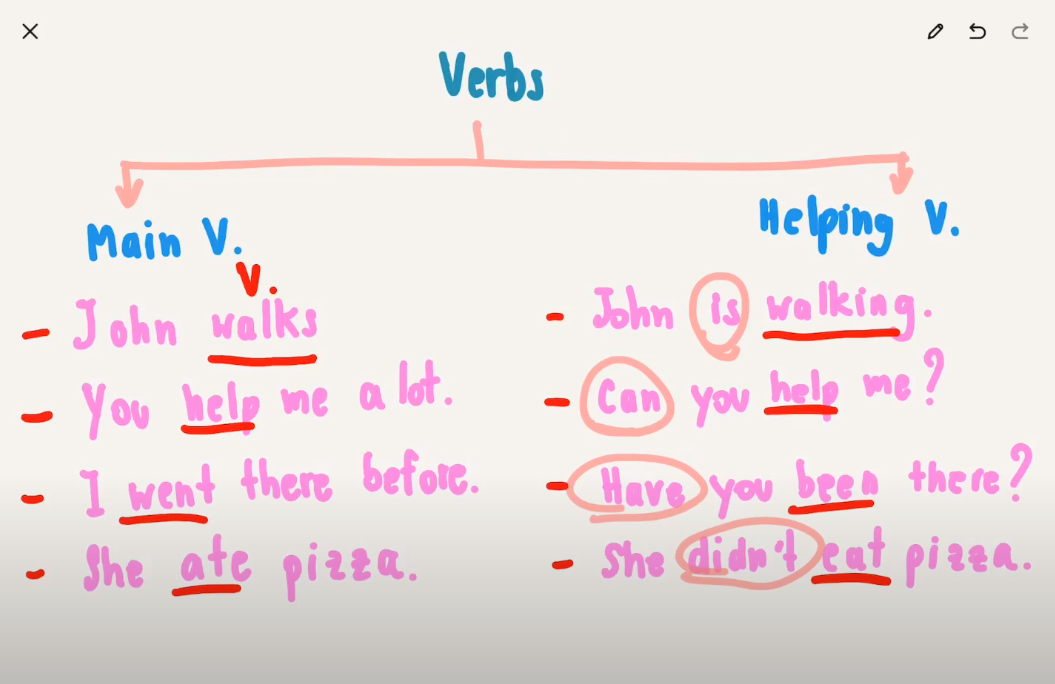 Verbs
Main V.
Helping V.
V.
- John walks
- You help me a lot.
- I went there before.
- She ate pizza.
- John is walking.
- Can you help me?
- Have you been there?
- She didn't eat pizza.